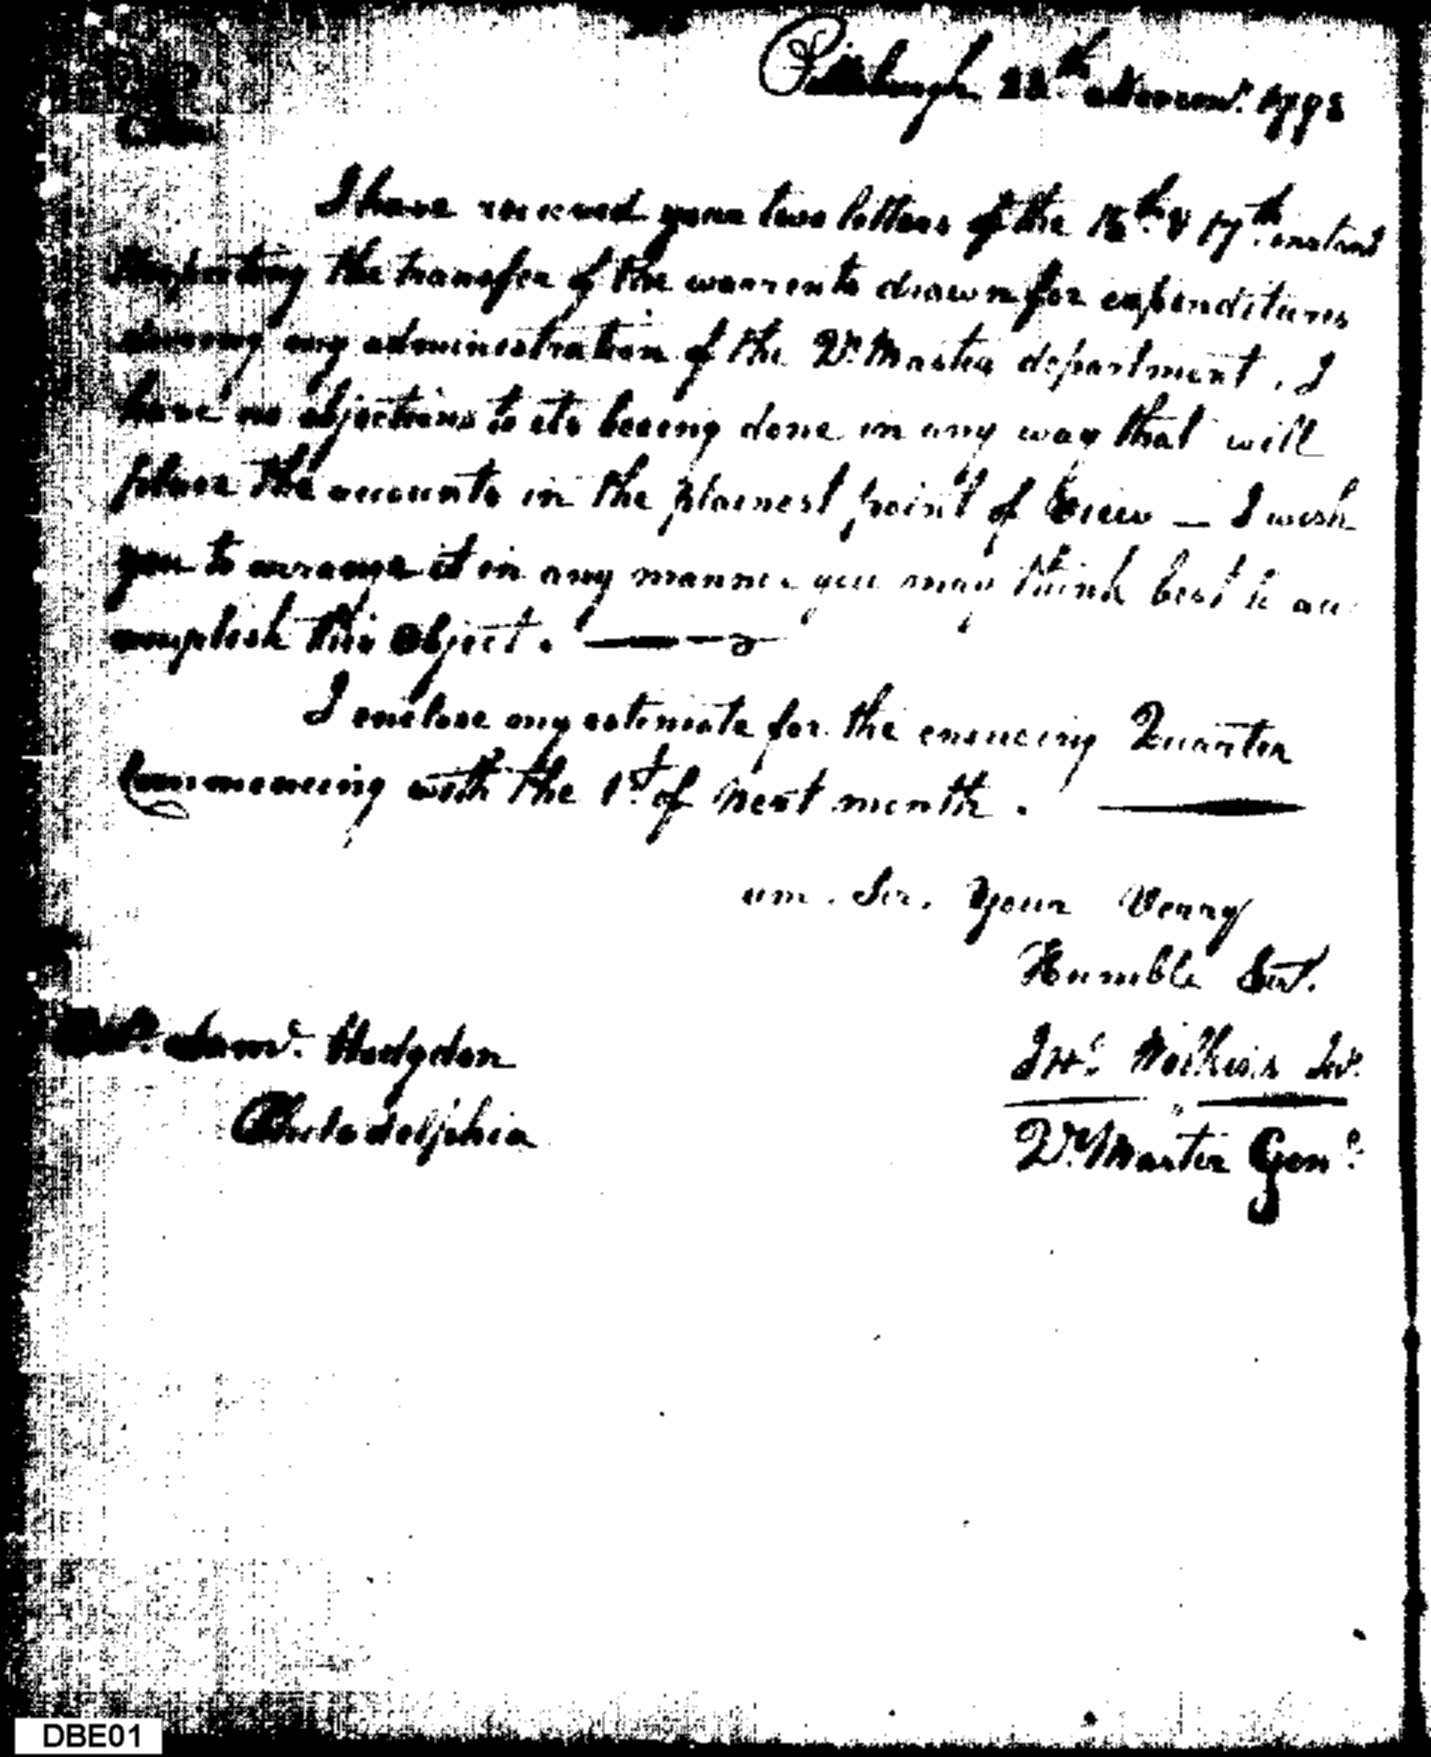 Pittsburgh 22th Novem'. 1798
Sir
I have received your two letters of the 16th. & 17th. instant
respecting the transfer of the warrents drawn for expenditures
during my administration of the Qr. Master department, I
have no objections to its beeing done in any way that will
place the accounts in the plainest point of View — I wish
you to arrange it in any manner you may think best to ac
complish this Object. —
I enclose my estimate for the ensueing Quarter
Commencing with the 1st. of next month. —
am. Sir. Your Verry
Humble Sert.
Jno. Wilkins Jur.
Qr. Master Genl.
Saml. Hodgdon
Philadelphia
DBE01